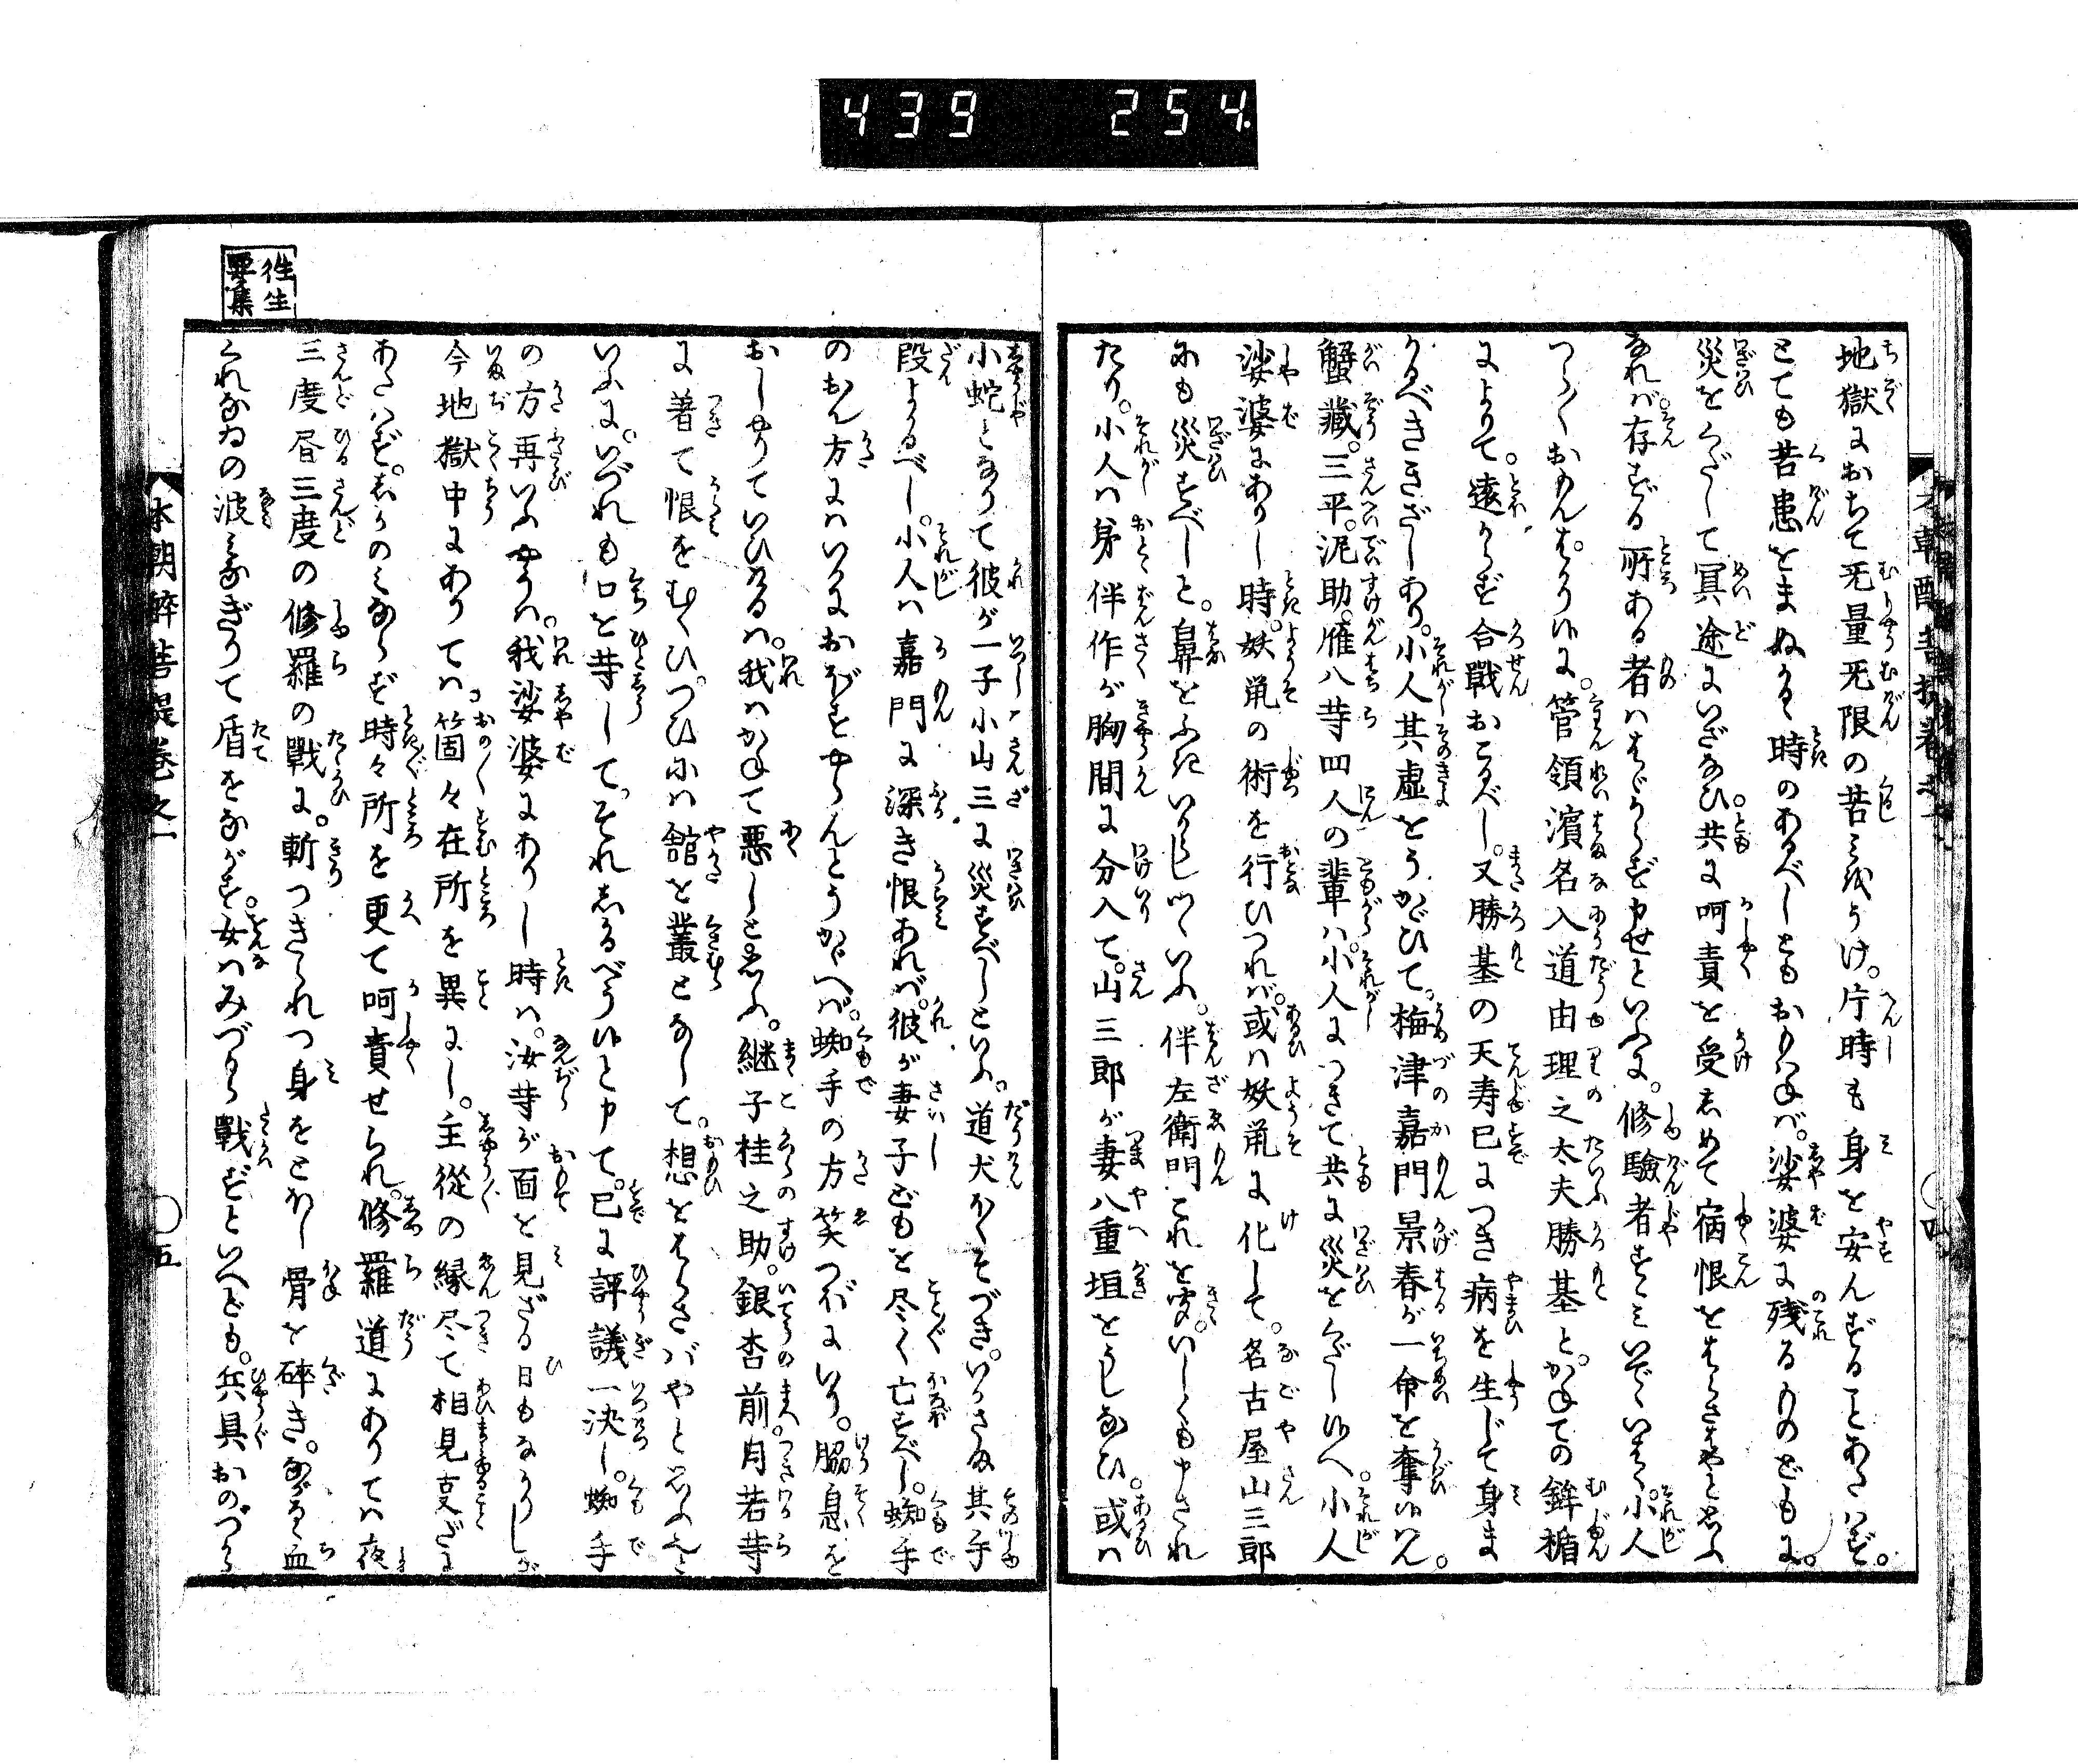 439 254.
地獄におちて无量无限の苦みをうけ。片時も身を安んずることあたはず。
とても苦患をまぬかるゝ時のあるべしともおもはねば。娑婆に残るものどもに。
災をくだして冥途にいざなひ。共に呵責を受しめて宿恨をはらさばやと思ふ
なれバ。存ずる所ある者ハはゞからず申せといふに。修驗者すゝみいでゝいはく。小人
つら〳〵おもんはかり候に。管領濱名入道由理之太夫勝基と。かねての鉾楯
によりて。遠からず合戰おこるべし。又勝基の天寿已につき病を生じて身ま
かるべききざしあり。小人其虚をうかゞひて。梅津嘉門景春が一命を奪候はん。
蟹藏。三平。泥助。雁八等四人の輩ハ。小人につきて共に災をくだし候へ。小人
娑婆にありし時。妖鼡の術を行ひつれバ。或ハ妖鼡に化して。名古屋山三郎
にも災すべしと。鼻をふきいからしつゝいふ。伴左衛門これを聞。いしくも申され
たり。小人ハ身伴作が胸間に分入て。山三郎が妻八重垣をうしなひ。或ハ
小蛇となりて彼が一子小山三に災すべしといふ。道犬かくそづき。いかさま其手
段よかるべし。小人ハ嘉門に深き恨あれバ。彼が妻子どもを尽く亡すべし。蜘手
のおん方にハいかにおぼすやらんとうかゞへバ。蜘手の方笑つぼにいり。脇息を
おしやりていひけるハ。我ハかねて悪しと思ふ。継子桂之助。銀杏前。月若等
に着て恨をむくひ。つひにハ舘を叢となして。想をはらさバやと思ふ也と
いふに。いづれも口を等して。それしかるべう候と申て。已に評議一決し。蜘手
の方再いふやうハ。我娑婆にありし時ハ。汝等が面を見ざる日もなかりしが
今地獄中にありてハ。箇々在所を異にし。主從の縁尽て相見支ざに
あたハず。しかのみならず時々所を更て呵責せられ。修羅道にありてハ夜
三度昼三度の修羅の戰に。斬つきられつ身をとほし骨を碎き。ながるゝ血
くれなゐの波みなぎりて盾をながす。女ハみづから戰ずといへども。兵具おのづから
往生
要集
本朝醉菩提卷之一
○五
○四